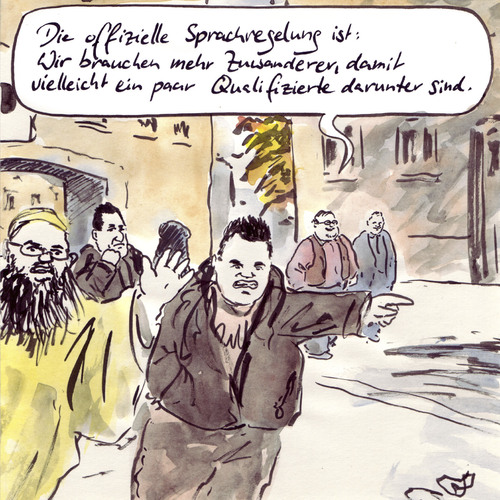 Die offizielle Sprachregelung ist:
Wir brauchen mehr Zuwanderer, damit
vielleicht ein paar Qualifizierte darunter sind.